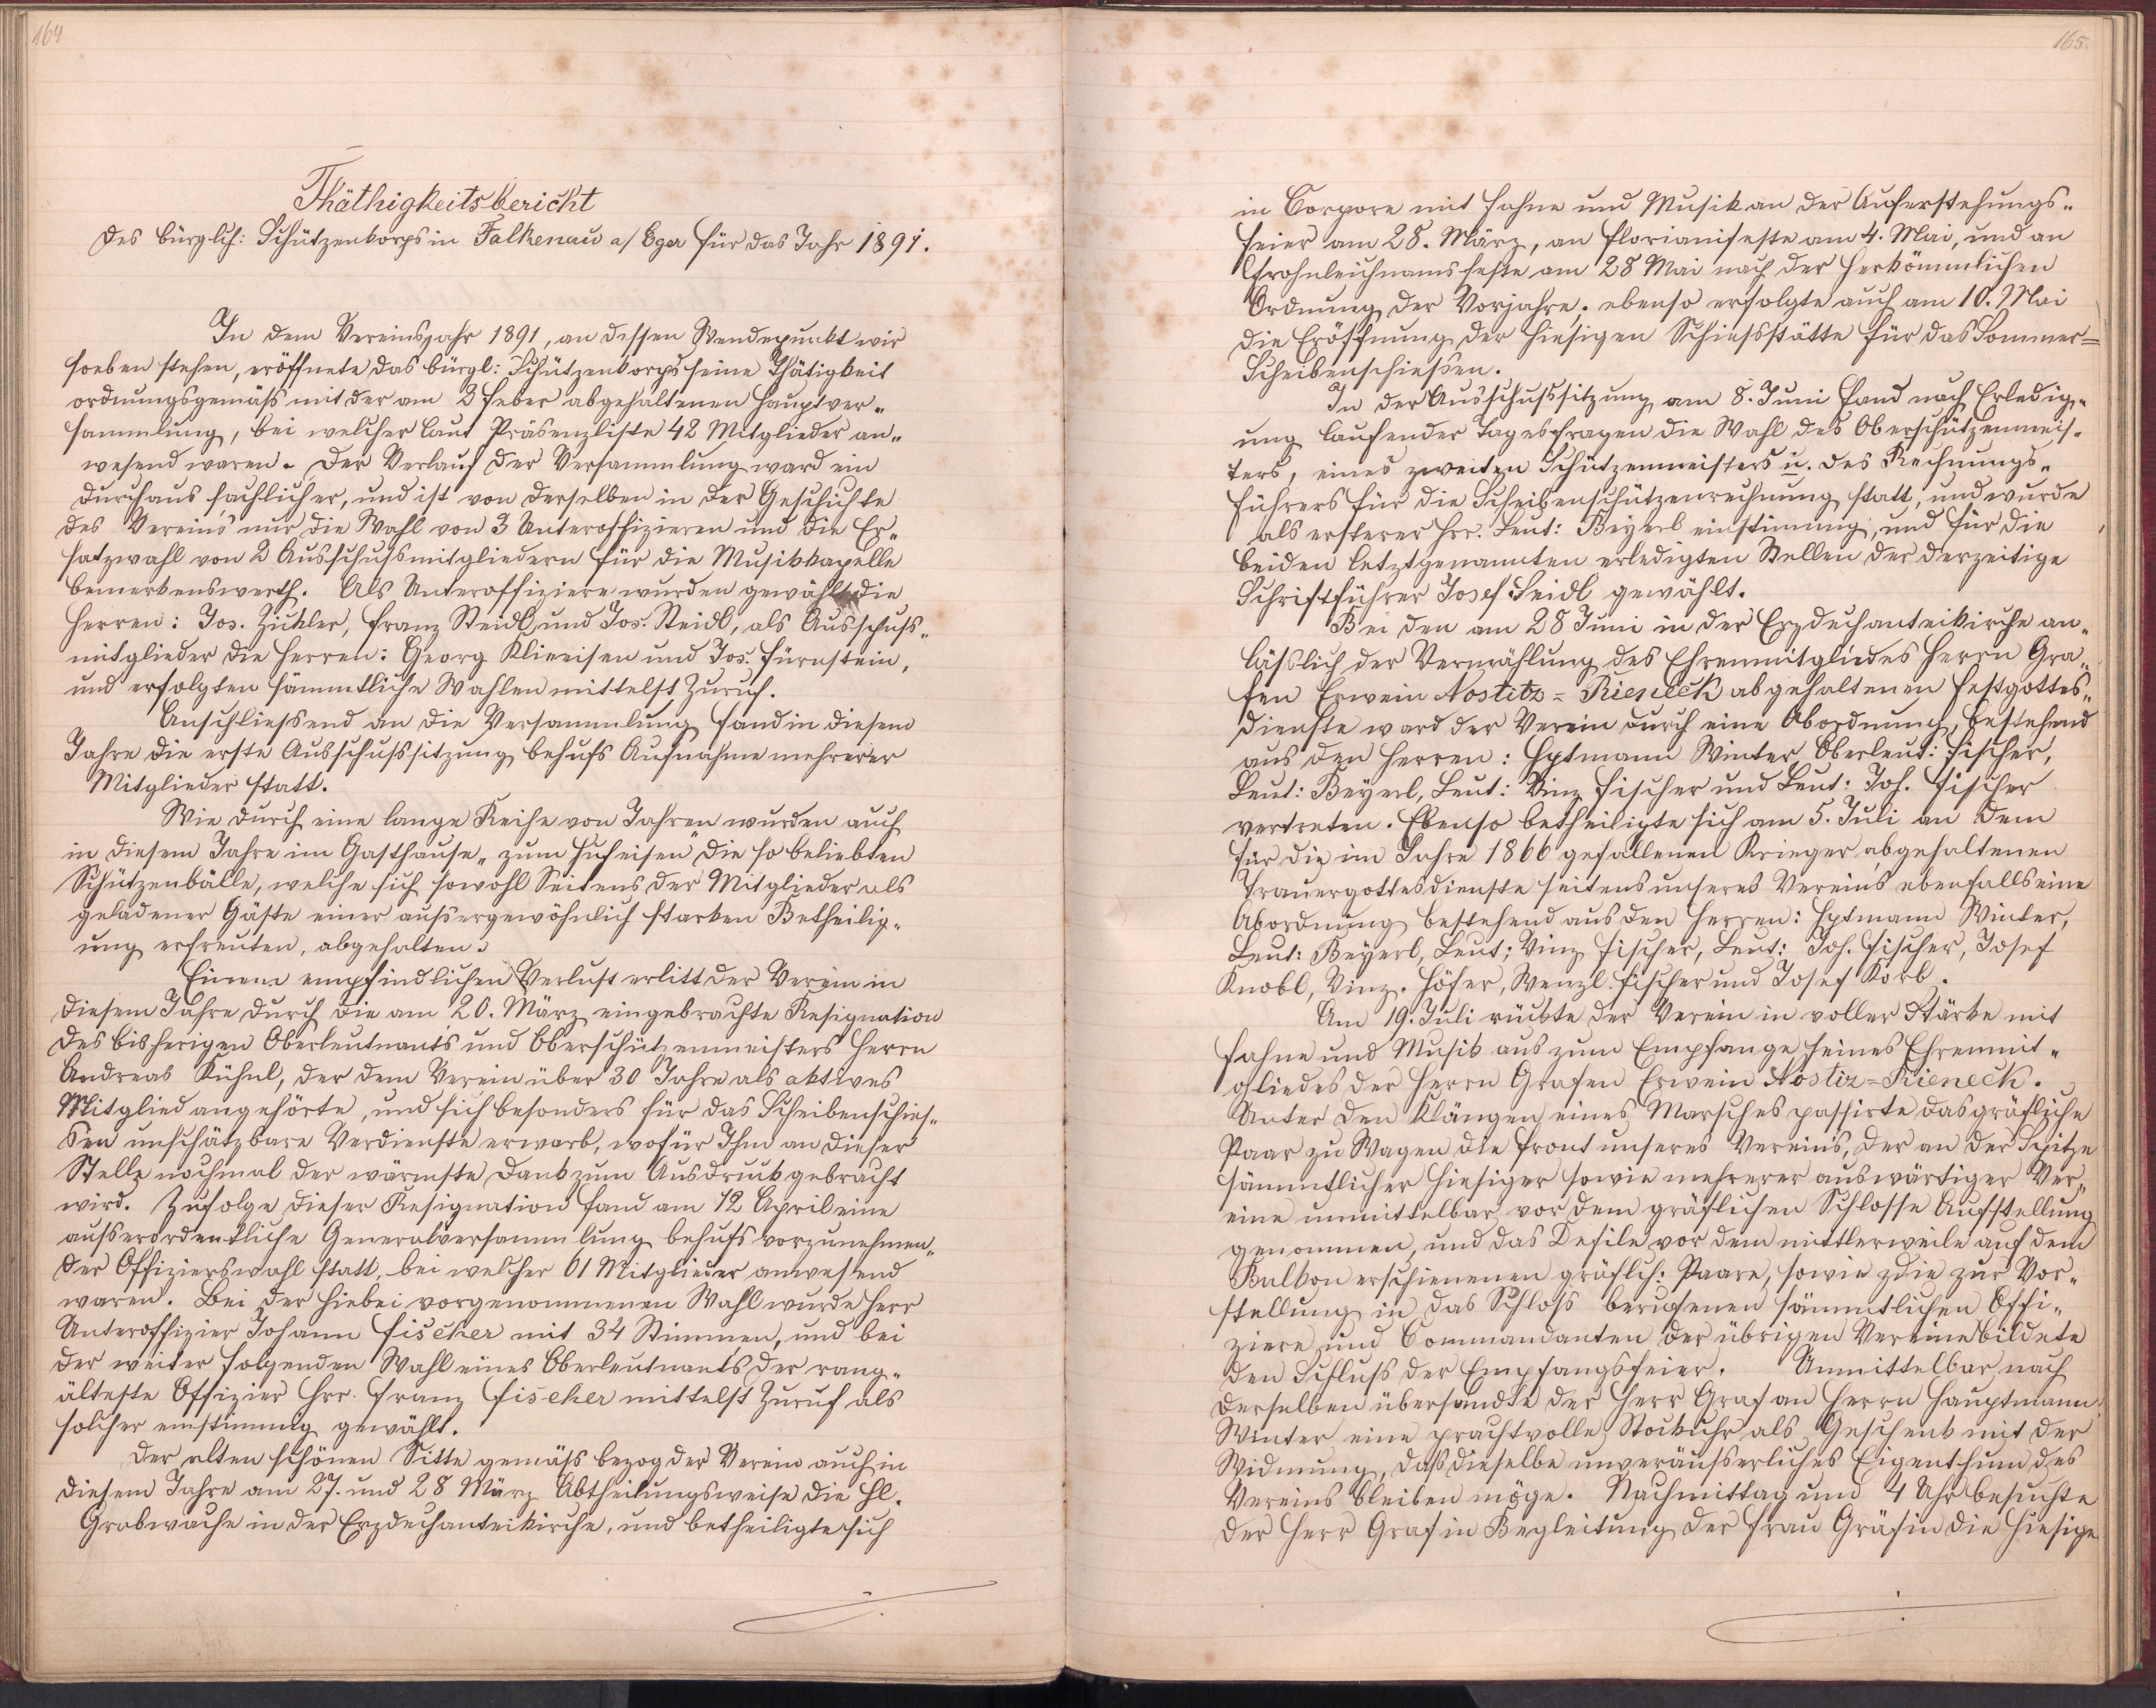 164
Thäthigkeitsbericht
des bürglch: Schützenkorps in Falkenau a/ Eger für das Jahr 1891.
In dem Vereinsjahr 1891, an dessen Wendepunkt wir
soeben stehen, eröffnete das bürgl: Schützenkorps seine Thätigkeit
ordnungsgemäß mit der am 2 Feber abgehaltenen Hauptver„
sammlung, bei welcher laut Präsenzliste 42 Mitglieder an„
wesend waren. Der Verlauf der Versammlung ward ein
durchaus sachlicher, und ist von derselben in der Geschichte
des Vereins nur die Wahl von 3 Unteroffizieren und die Er„
satzwahl von 2 Ausschußmitgliedern für die Musikkapelle
bemerkenswerth. Als Unteroffiziere wurden gewählt die
Herren: Jos. Zickler, Franz Steidl und Jos. Steidl, als Ausschuß„
mitglieder die Herren: Georg Klieeisen und Jos. Fürnstein,
und erfolgten sämmtliche Wahlen mittelst Zuruf.
Anschliessend an die Versammlung fand in diesem
Jahre die erste Ausschußsitzung behufs Aufnahme mehrerer
Mitglieder statt.
Wie durch eine lange Reihe von Jahren wurden auch
in diesem Jahre im Gasthause „zum Hufeisen" die so beliebten
Schützenbälle, welche sich sowohl Seitens der Mitglieder als
geladener Gäste einer außergewöhnlich starken Betheilig„
ung erfreuten, abgehalten.
Einen empfindlichen Verlust erlitt der Verein in
diesem Jahre durch die am 20. März eingebrachte Resignation
des bisherigen Oberleutnants und Oberschützenmeisters Herrn
Andreas Kühnl, der dem Verein über 30 Jahre als aktives
Mitglied angehörte, und sich besonders für das Scheibenschies„
sen unschätzbare Verdienste erwarb, wofür Ihm an dieser
Stelle nochmal der wärmste Dank zum Ausdruck gebracht
wird. Zufolge dieser Resignation fand am 12 April eine
außerordentliche Generalversammlung behufs vorzunehmen„
der Offizierswahl statt, bei welcher 61 Mitglieder anwesend
waren. Bei der hiebei vorgenommenen Wahl wurde Herr
Unteroffizier Johann Fischer mit 34 Stimmen, und bei
der weiter folgenden Wahl eines Oberleutnants der rang„
älteste Offizier Hrr. Franz Fischer mittelst Zuruf als
solcher einstimmig gewählt.
Der alten schönen Sitte gemäß bezog der Verein auch in
diesem Jahre am 27. und 28 März Abtheilungsweise die Hl.
Grabwache in der Erzdechanteikirche, und betheiligte sich
165.
in Corpore mit Fahne und Musik an der Auferstehungs„
feier am 28. März, an Florianifeste am 4. Mai, und an
Frohnleichnamsfeste am 28 Mai nach der herkömmlichen
Ordnung der Vorjahre; ebenso erfolgte auch am 10. Mai
die Eröffnung der hiesigen Schiesstätte für das Sommer=
Scheibenschießen.
In der Ausschußsitzung am 8. Juni fand nach Erledig„
ung laufender Tagesfragen die Wahl des Oberschützenmeis„
ters, eines zweiten Schützenmeisters u. des Rechnungs„
führers für die Scheibenschützenrechnung statt, und wurde
als ersterer Hrr. Leut: Beyerl einstimmig, und für die
beiden letztgenannten erledigten Stellen der derzeitige
Schriftführer Josef Seidl gewählt.
Bei den am 28 Juni in der Erzdechanteikirche an„
läßlich der Vermählung des Ehrenmitgliedes Herrn Gra„
fen Erwein Nostitz=Rieneck abgehaltenen Festgottes„
dienste ward der Verein durch eine Abordnung, bestehend
aus den Herren: Hptmann Winter, Oberleut: Fischer,
Leut: Beyerl, Leut: Vinz Fischer und Leut: Joh. Fischer
vertreten. Ebenso betheiligte sich am 5. Juli an dem
für die im Jahre 1866 gefallenen Krieger abgehaltenen
Trauergottesdienste seitens unseres Vereins ebenfalls eine
Abordnung bestehend aus den Herren: Hptmann Winter,
Leut: Beyerl, Leut: Vinz Fischer, Leut: Joh. Fischer, Josef
Knobl, Vinz. Höfer, Wenzl Fischer und Josef Korb.
Am 19. Juli rückte der Verein in voller Stärke mit
Fahne und Musik aus zum Empfange seines Ehrenmit„
gliedes der Herrn Grafen Erwein Nostiz=Rieneck.
Unter den Klängen eines Marsches passirte das gräfliche
Paar zu Wagen die Front unseres Vereins, der an der Spitze
sämmtlicher hiesiger sowie mehrerer auswärtiger Ver„
eine unmittelbar vor dem gräflichen Schlosse Aufstellung
genommen, und das Defile vor dem mittlerweile auf dem
Balkon erschienenen gräflch: Paare, sowie die zur Vor„
stellung in das Schloß berufenen sämmtlichen Offi„
ziere und Commandanten der übrigen Vereine bildete
den Schluß der Empfangsfeier. Unmittelbar nach
derselben übersandte der Herr Graf an Herrn Hauptmann
Winter eine prachtvolle Stockuhr als Geschenk mit der
Widmung, daß dieselbe unveräußerliches Eigenthum des
Vereins bleiben möge. Nachmittag um 4 Uhr besuchte
der Herr Graf in Begleitung der Frau Gräfin die hiesige